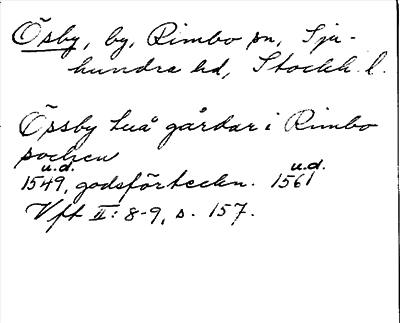 Ösby, by, Rimbo sn, Sju-
hundra hd, Stockh. l.
Össby tuå gårdar i Rimbo
sochen
u.d. u.d.
1549, godsförteckn. 1561
Vft II: 8-9, s. 157.